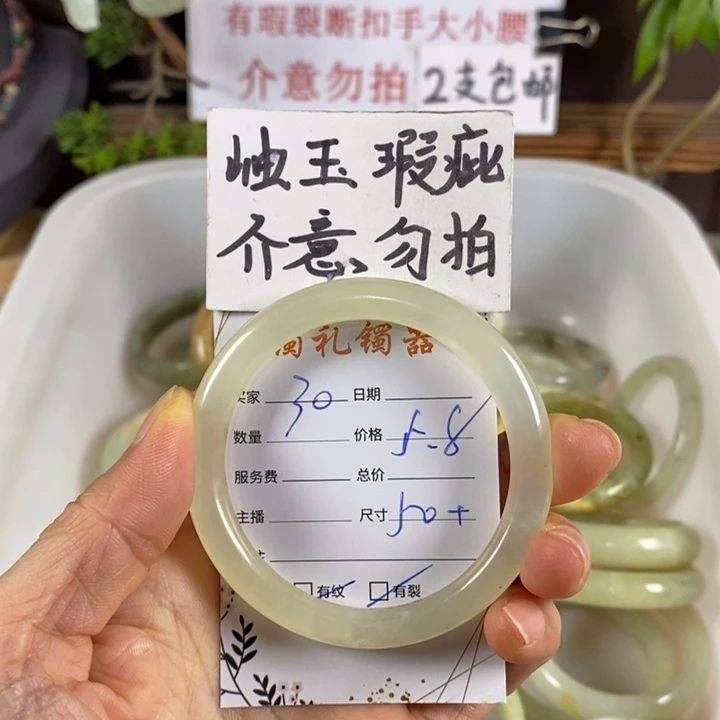 有瑕裂断扣手大小腰
介意勿拍 2支包邮
岫玉瑕疵
介意勿拍
礼镯器
家 30 日期
数量 价格 5.8
服务费 总价
主播 尺寸 50+
有纹 有裂